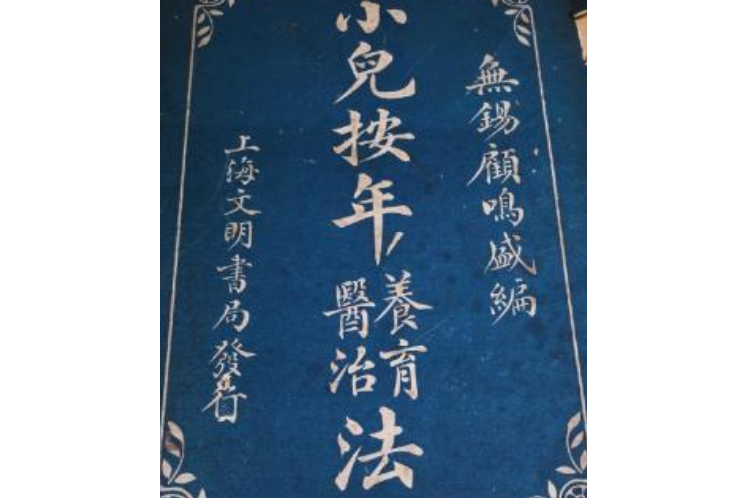 無錫顧鳴盛編
小兒按年養育醫治法
上海文明書局發行